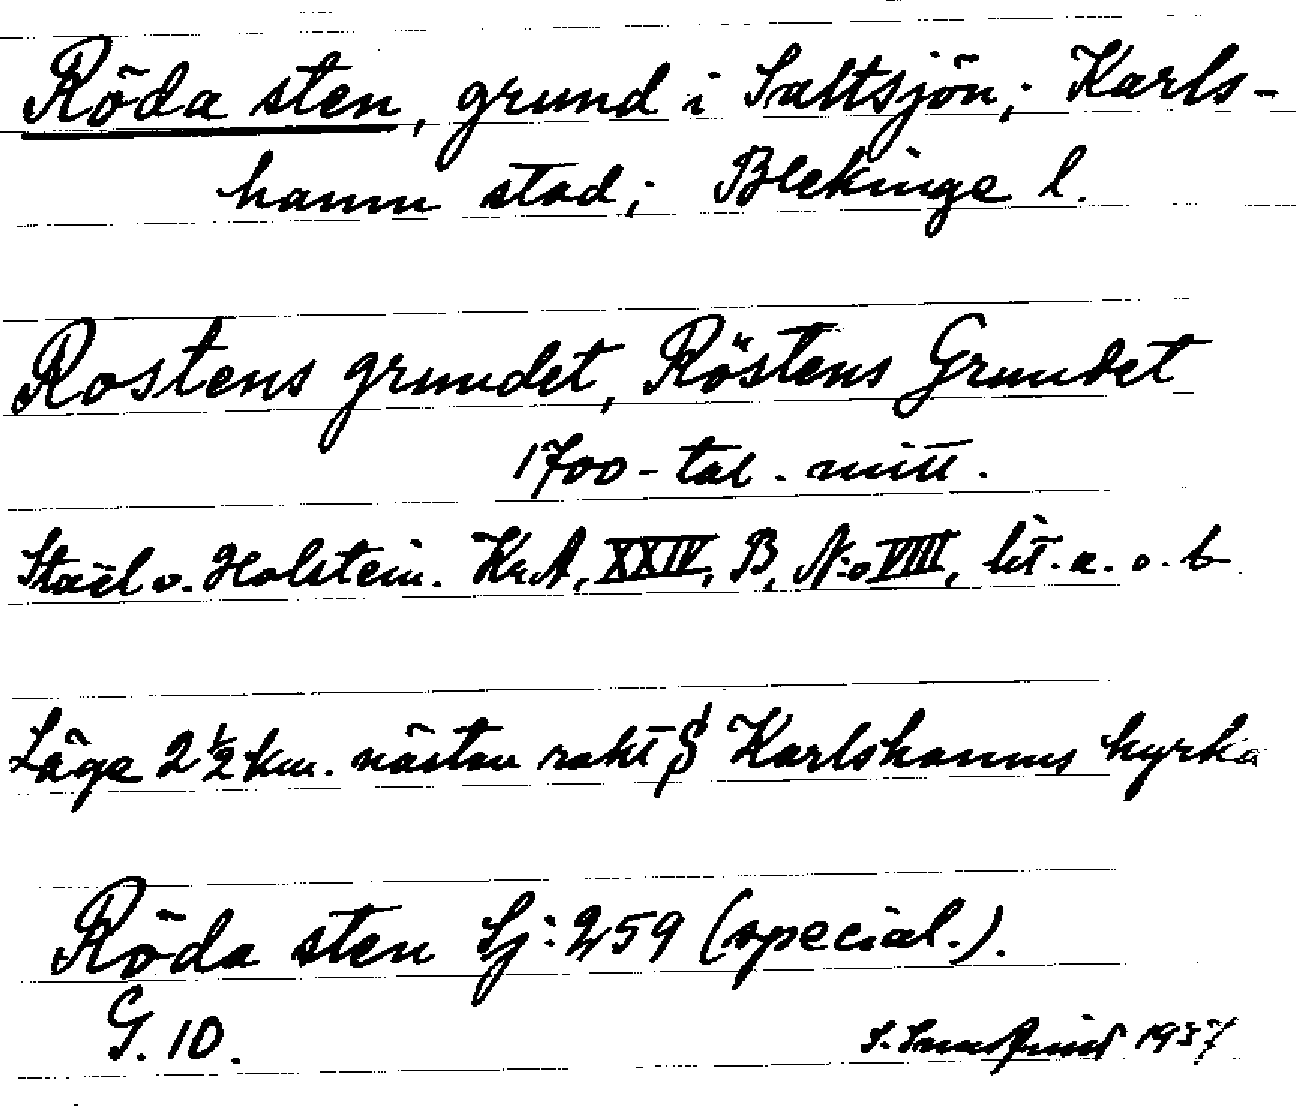 Röda sten, grund i Saltsjön; Karls-
hamn stad; Blekinge l.
Rostens grundet, Röstens Grundet
1700-tal. mitt.
Staël v. Holstein. Kr.A, XXIV, B, N:o VIII, lit. a. o. b
Läge 2½ km. nästan rakt S Karlshamns kyrka
Röda sten Sj: 259 (special.).
G. 10.
S. 1937